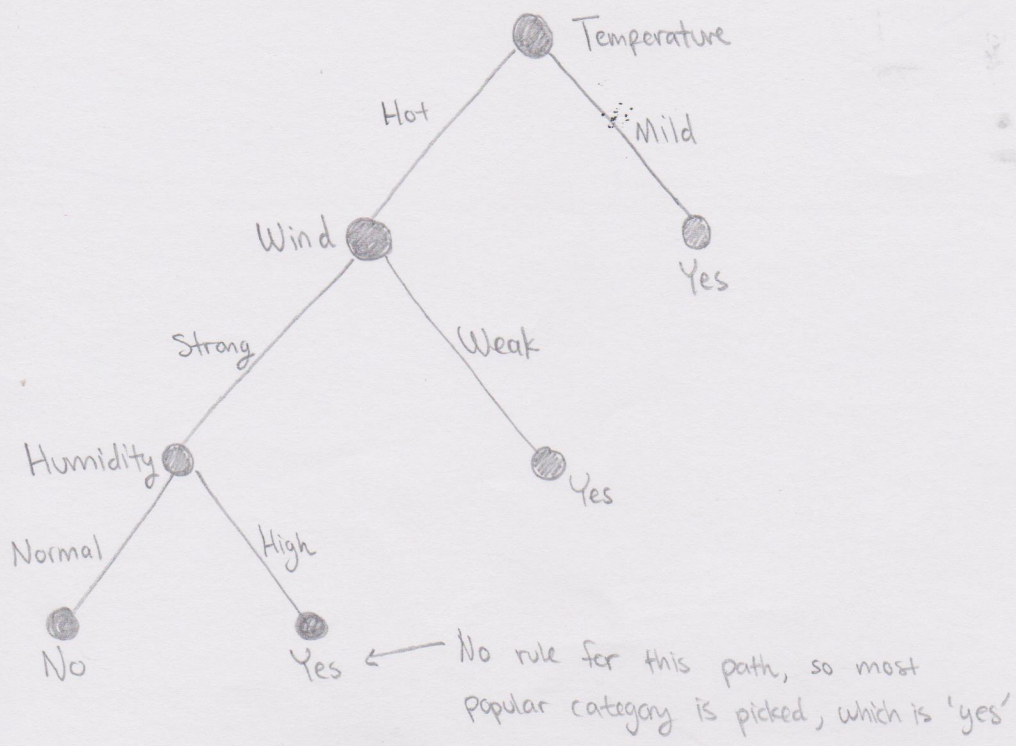 Temperature
Hot
Mild
Wind
Yes
Strong
Weak
Humidity
Yes
Normal
High
No
Yes
No rule for this path, so most
popular category is picked, which is 'yes'